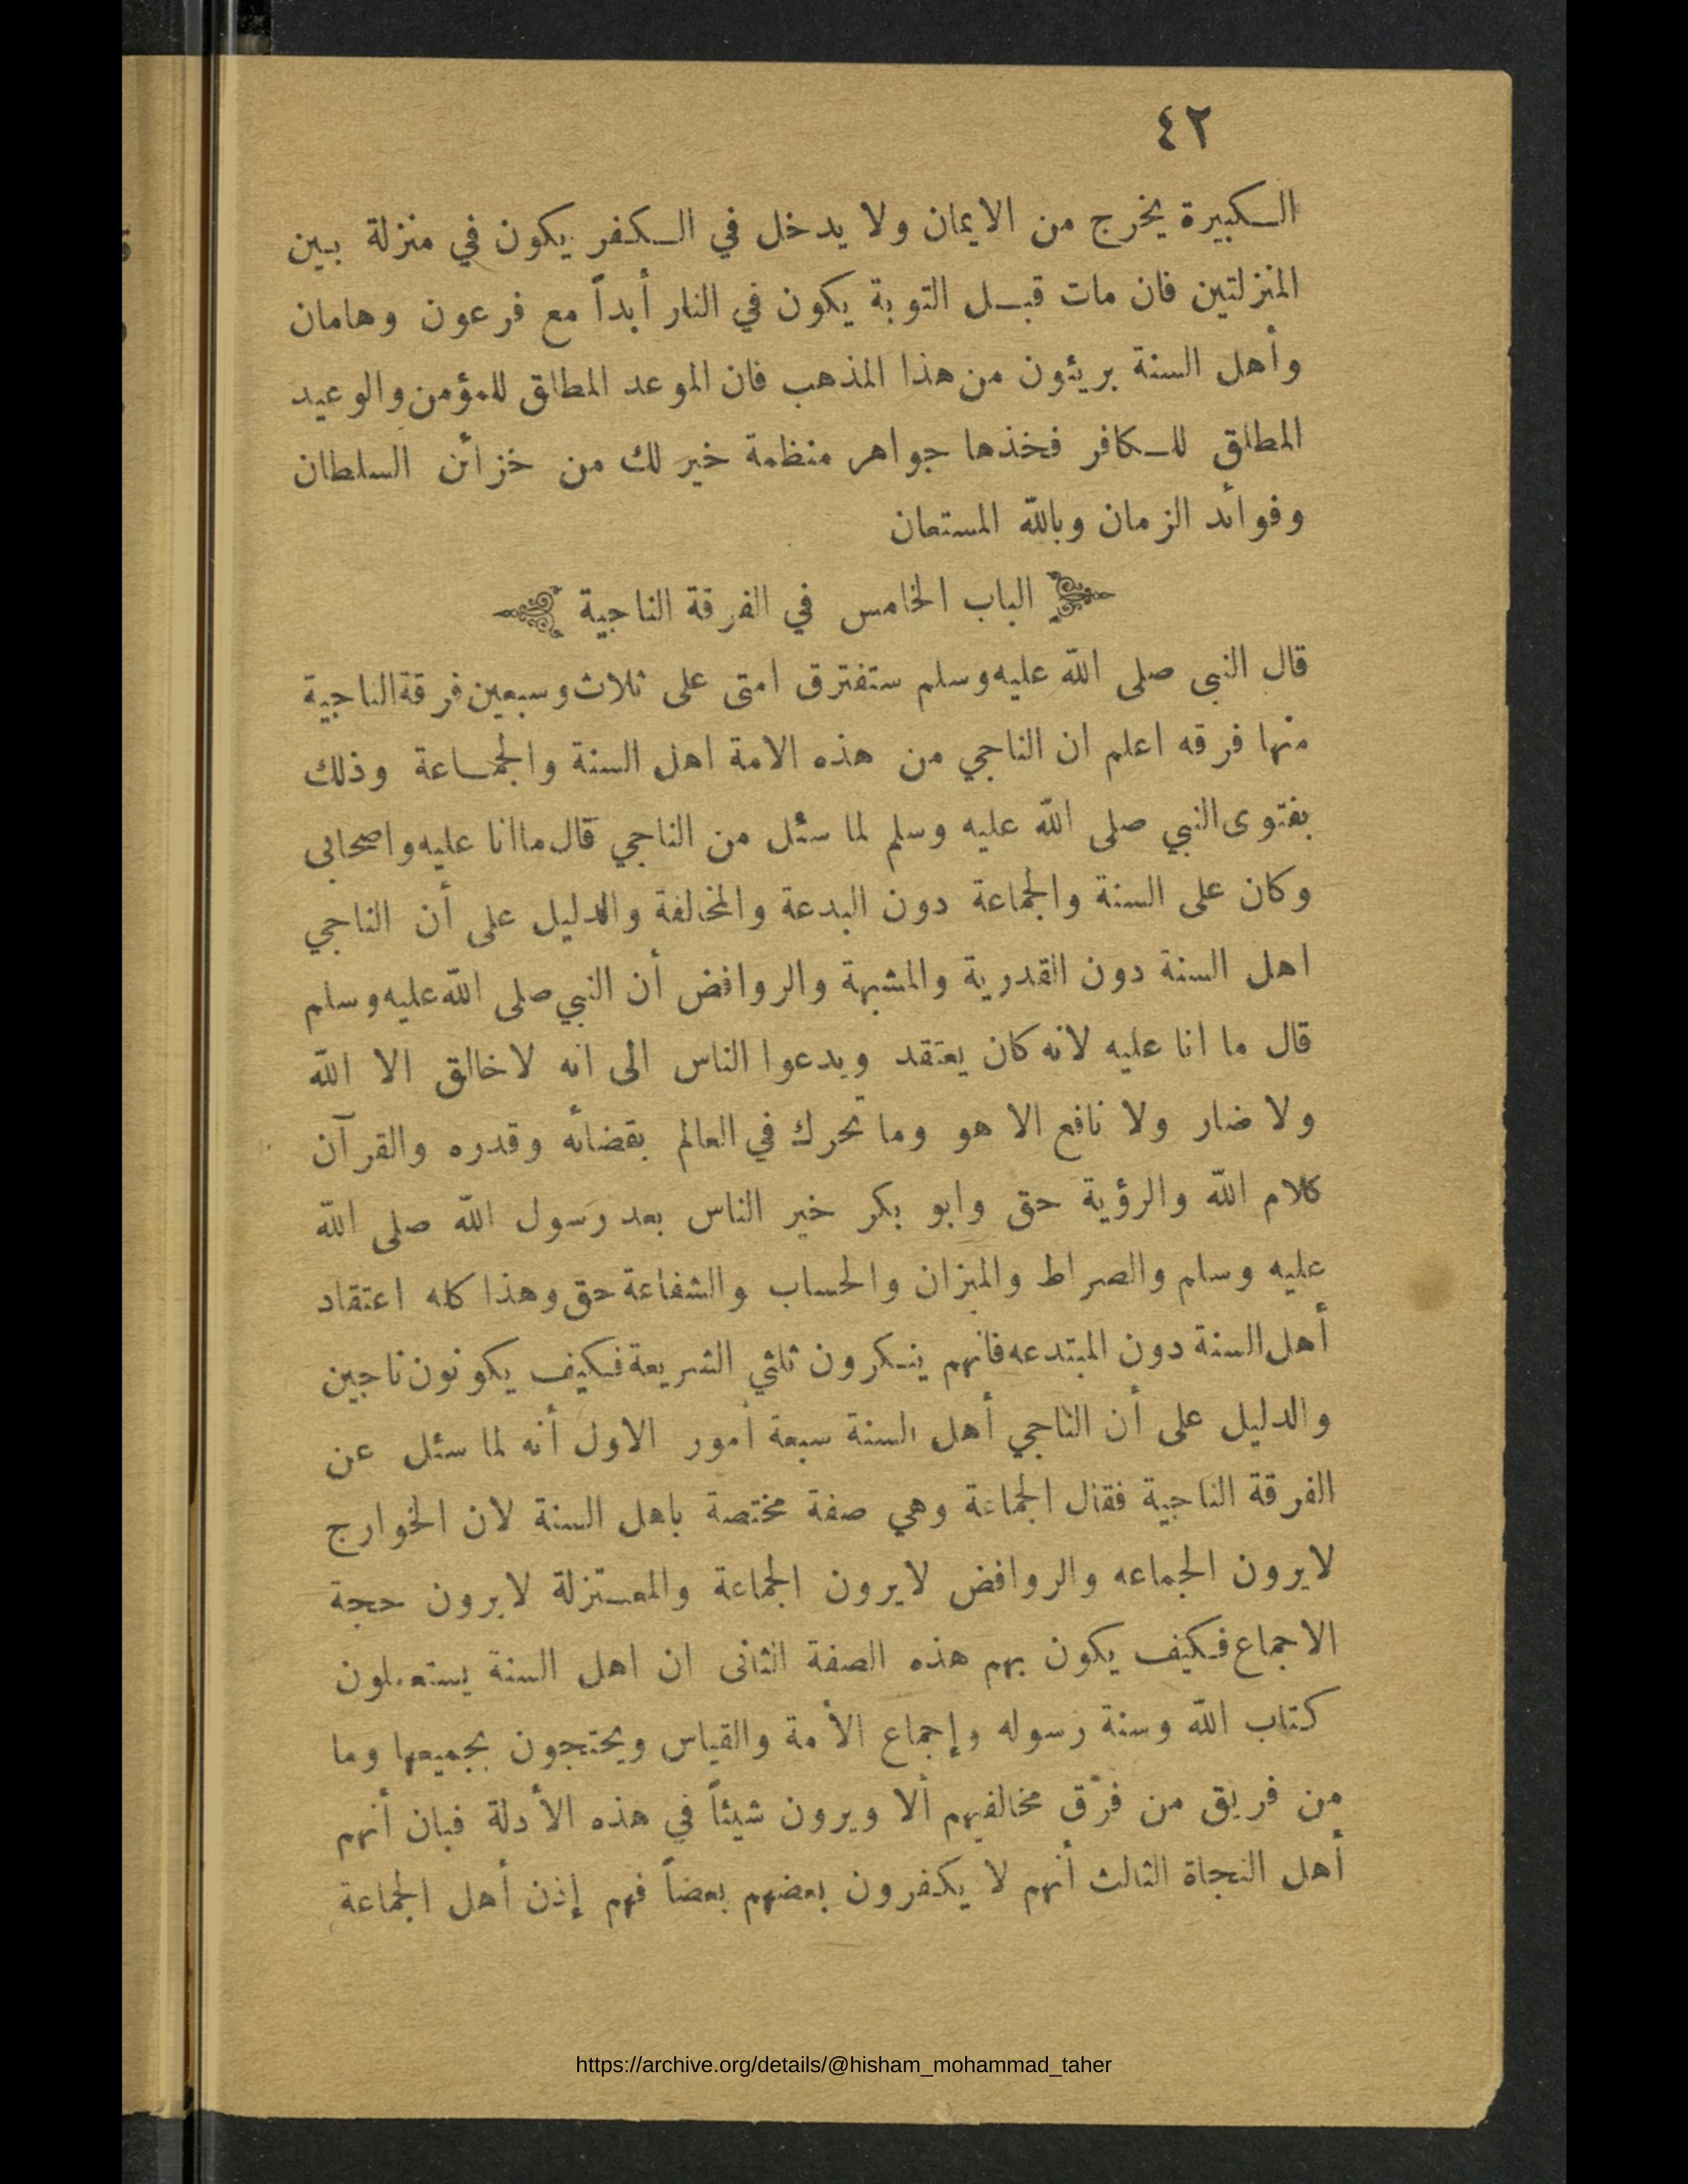 ٤٢
الكبيرة يخرج من الايمان ولا يدخل في الكفر يكون في منزلة بين
المنزلتين فان مات قبل التوبة يكون في النار أبداً مع فرعون وهامان
وأهل السنة بريئون من هذا المذهب فان الموعد المطلق للمؤمن والوعيد
المطلق للكافر فخذها جواهر منظمة خير لك من خزائن السلطان
وفوائد الزمان وبالله المستعان
الباب الخامس في الفرقة الناجية
قال النبى صلى الله عليه وسلم ستفترق امتى على ثلاث وسبعين فرقة الناجية
منها فرقه اعلم ان الناجي من هذه الامة اهل السنة والجماعة وذلك
بفتوى النبي صلى الله عليه وسلم لما سئل من الناجي قال ما انا عليه واصحابى
وكان على السنة والجماعة دون البدعة والمخالفة والدليل على أن الناجي
اهل السنة دون القدرية والمشبهة والروافض أن النبي صلى الله عليه وسلم
قال ما انا عليه لانه كان يعتقد ويدعوا الناس الى انه لا خالق الا الله
ولا ضار ولا نافع الا هو وما تحرك في العالم بقضائه وقدره والقرآن
كلام الله والرؤية حق وابو بكر خير الناس بعد رسول الله صلى الله
عليه وسلم والصراط والميزان والحساب والشفاعة حق وهذا كله اعتقاد
أهل السنة دون المبتدعه فانهم ينكرون ثلثي الشريعة فكيف يكونون ناجين
والدليل على أن الناجي أهل السنة سبعة أمور الاول أنه لما سئل عن
الفرقة الناجية فقال الجماعة وهي صفة مختصة باهل السنة لان الخوارج
لا يرون الجماعه والروافض لا يرون الجماعة والمعتزلة لا يرون حجة
الاجماع فكيف يكون بهم هذه الصفة الثانى ان اهل السنة يستعملون
كتاب الله وسنة رسوله وإجماع الأمة والقياس ويحتجون بجميعها وما
من فريق من فرق مخالفيهم ألا ويرون شيئاً في هذه الأدلة فبان أنهم
أهل النجاة الثالث أنهم لا يكفرون بعضهم بعضاً فهم إذن أهل الجماعة
https://archive.org/details/@hisham_mohammad_taher